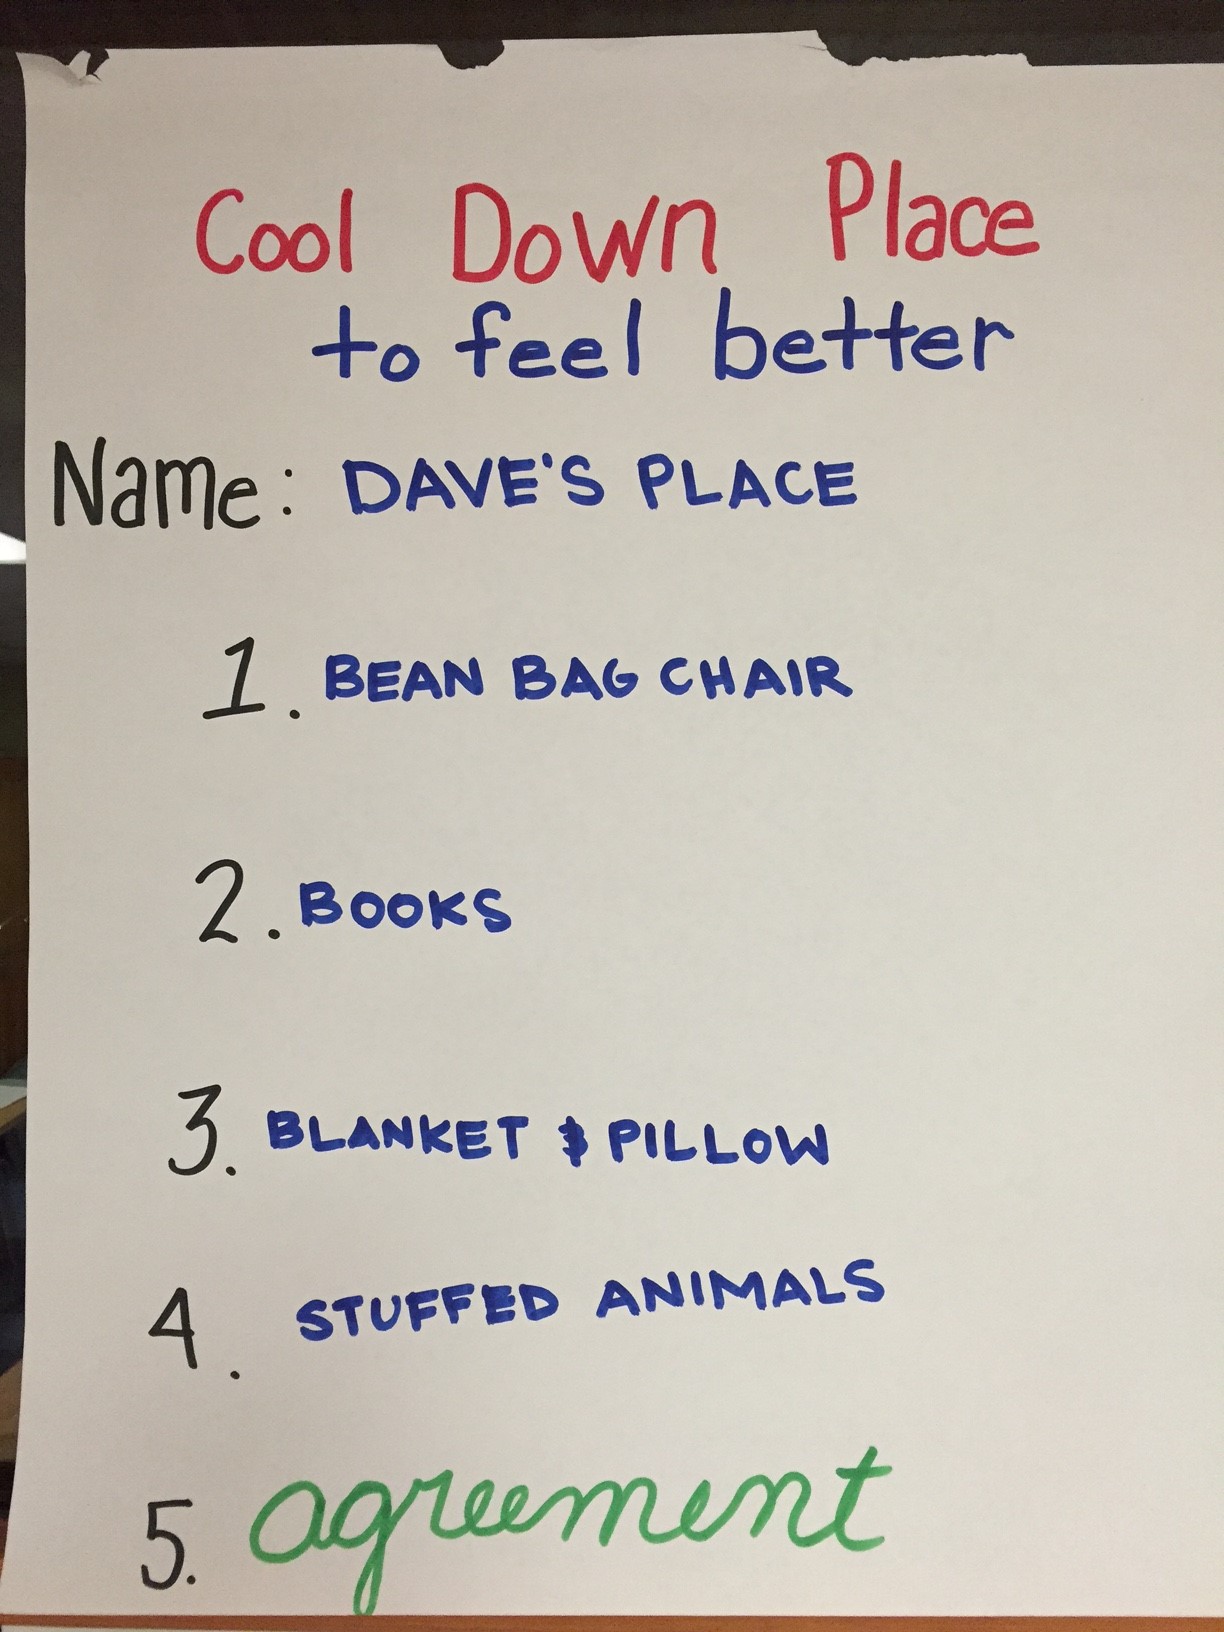 Cool Down Place
to feel better
Name: DAVE'S PLACE
1. BEAN BAG CHAIR
2. BOOKS
3. BLANKET & PILLOW
4. STUFFED ANIMALS
5. agreement